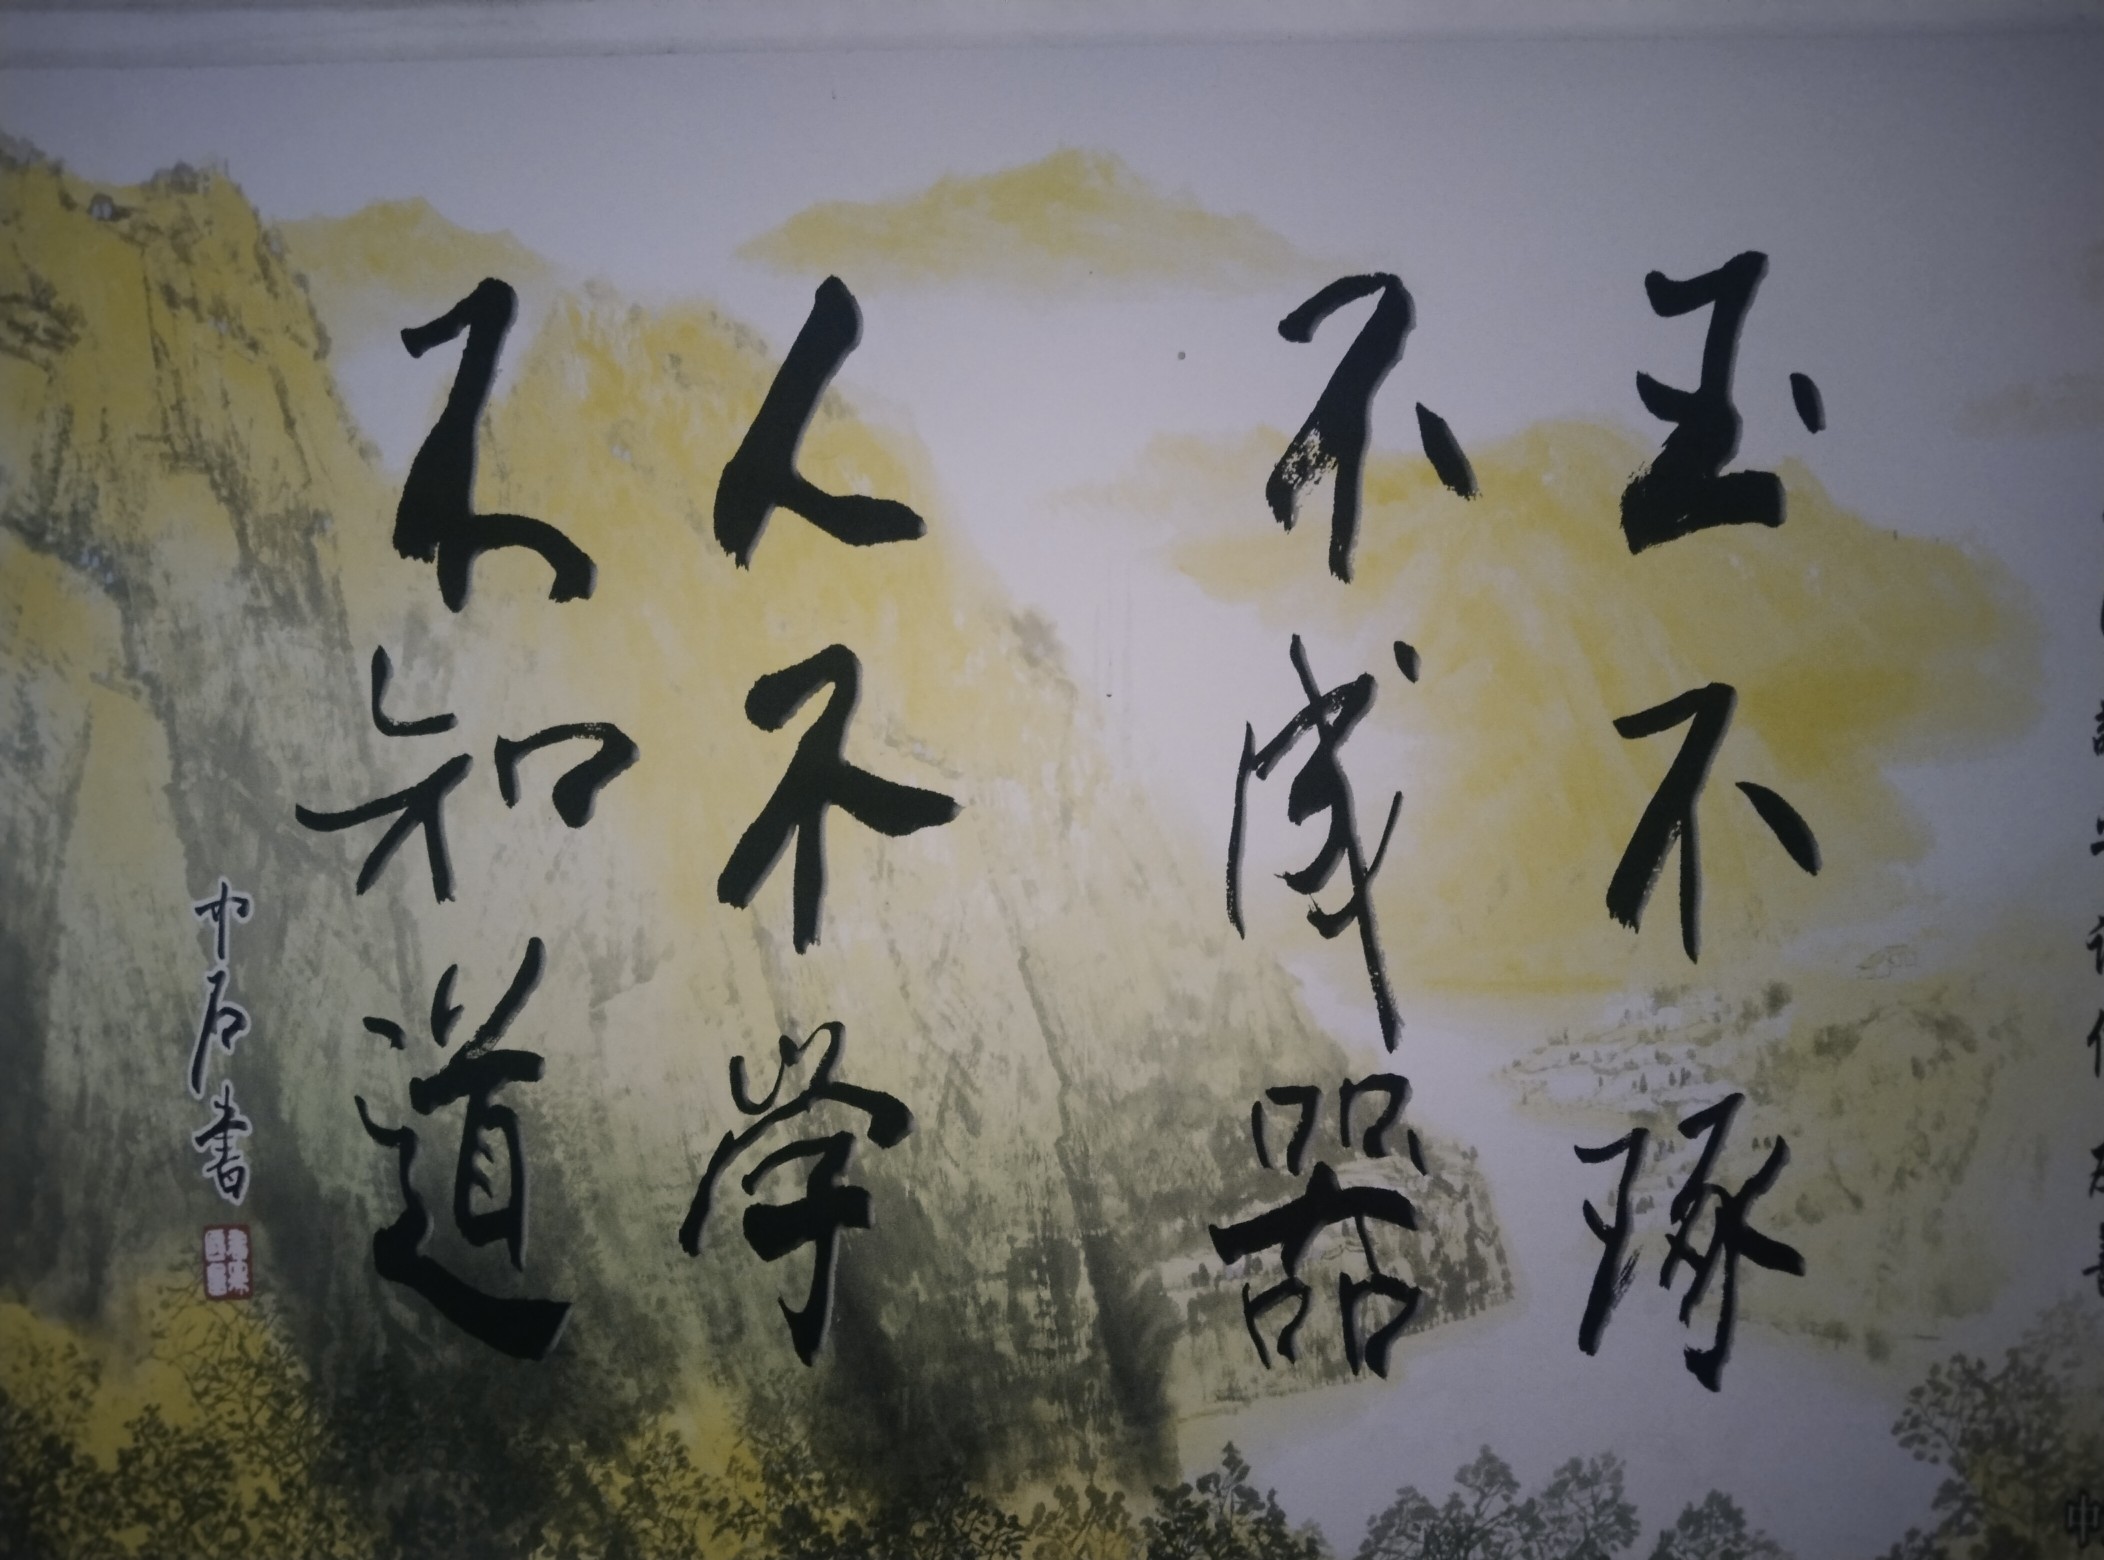 玉不琢
不成器
人不学
不知道
中石书